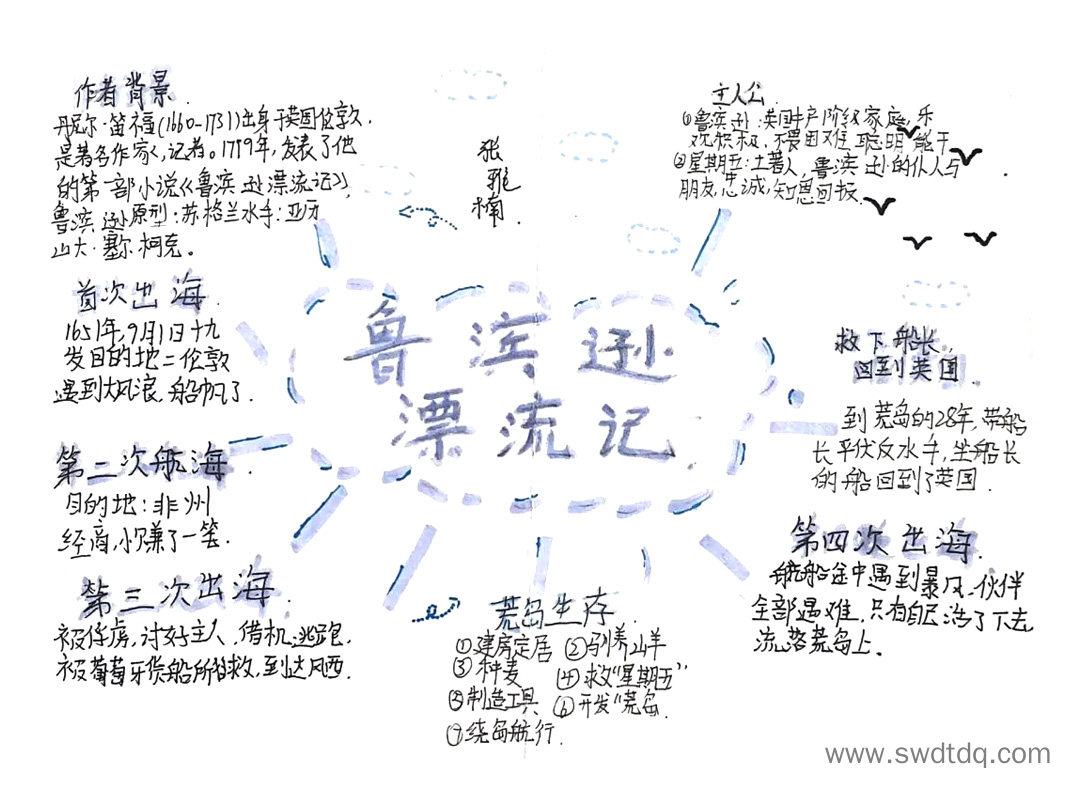 作者背景
丹尼尔·笛福(1660-1731)出身于英国伦敦,
是著名作家,记者。1719年,发表了他
的第一部小说《鲁滨逊漂流记》,
鲁滨逊原型:苏格兰水手:亚历
山大·塞尔柯克。
张
雅
楠
主人公
①鲁滨逊:英国中产阶级家庭,乐
观积极,不畏困难,聪明能干
②星期五:土著人,鲁滨逊的仆人与
朋友,忠诚,知恩回报
鲁滨逊
漂流记
首次出海
1651年,9月1日
发目的地:伦敦
遇到大风浪,船帆了
第二次航海
目的地:非州
经商,小赚了一笔.
第三次出海
被俘虏,讨好主人,借机逃跑,
被葡萄牙货船所救,到达巴西.
荒岛生存
①建房定居 ②驯养山羊
③种麦 ④救“星期五”
⑤制造工具 ⑥开发“荒岛
⑦绕岛航行.
救下船长,
回到英国.
到荒岛的28年,带船
长平伏反水手,坐船长
的船回到了英国.
第四次出海.
航船途中遇到暴风,伙伴
全部遇难,只有自己活了下去
流落荒岛上.
www.swdtdq.com